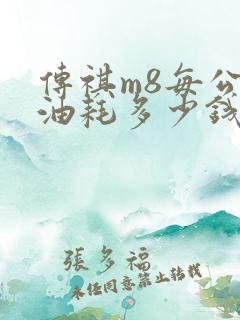 傳祺m8每公
油耗多少錢
張多福
未經同意禁止轉載